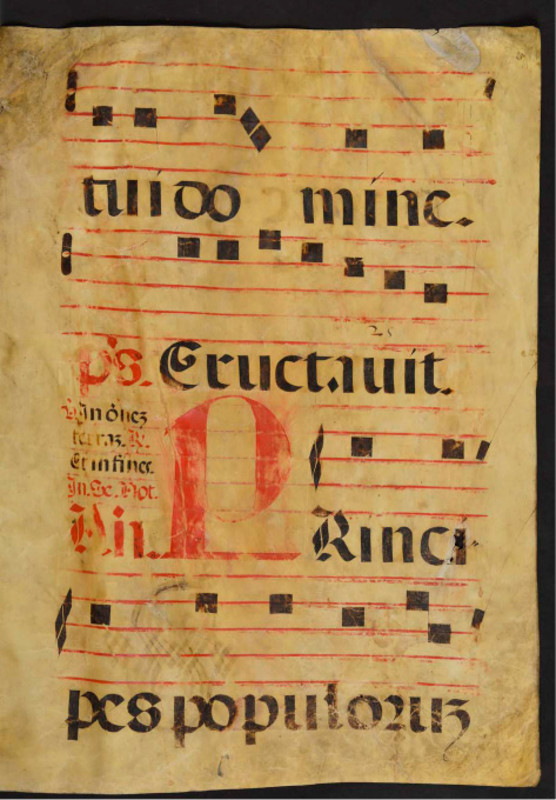 tui do mine.
ps. Eructauit.
℣. In oēz
terraz. R.
Et in finez.
In. Sc. Not.
An.
PRinci
pes populoruz